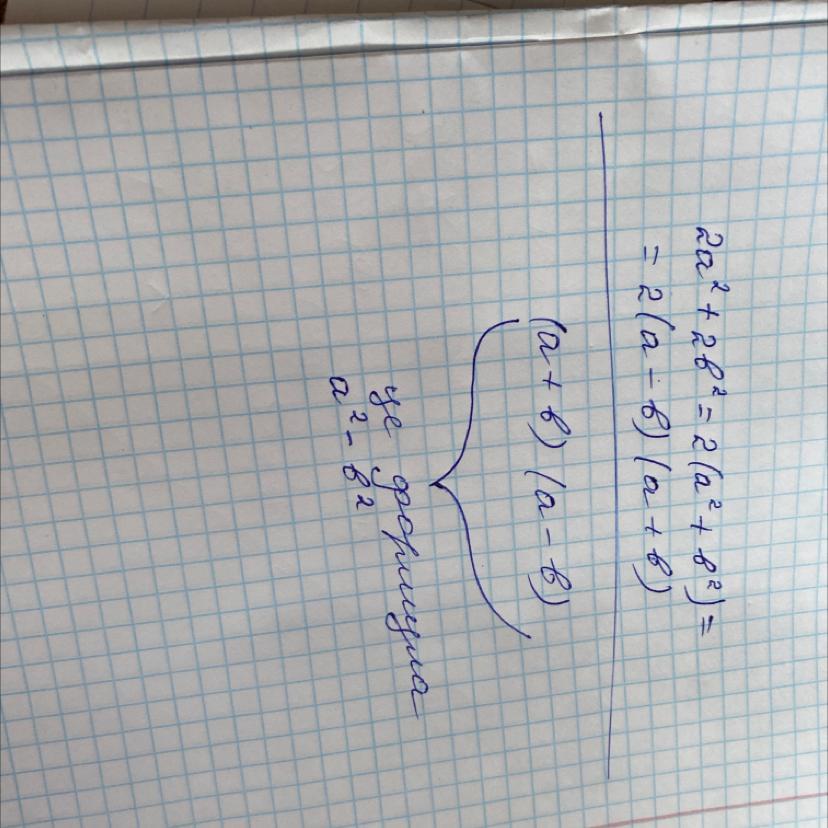 2a² + 2b² = 2(a² + b²) =
= 2(a - b)(a + b)
(a + b)(a - b)
це формула
a² - b²